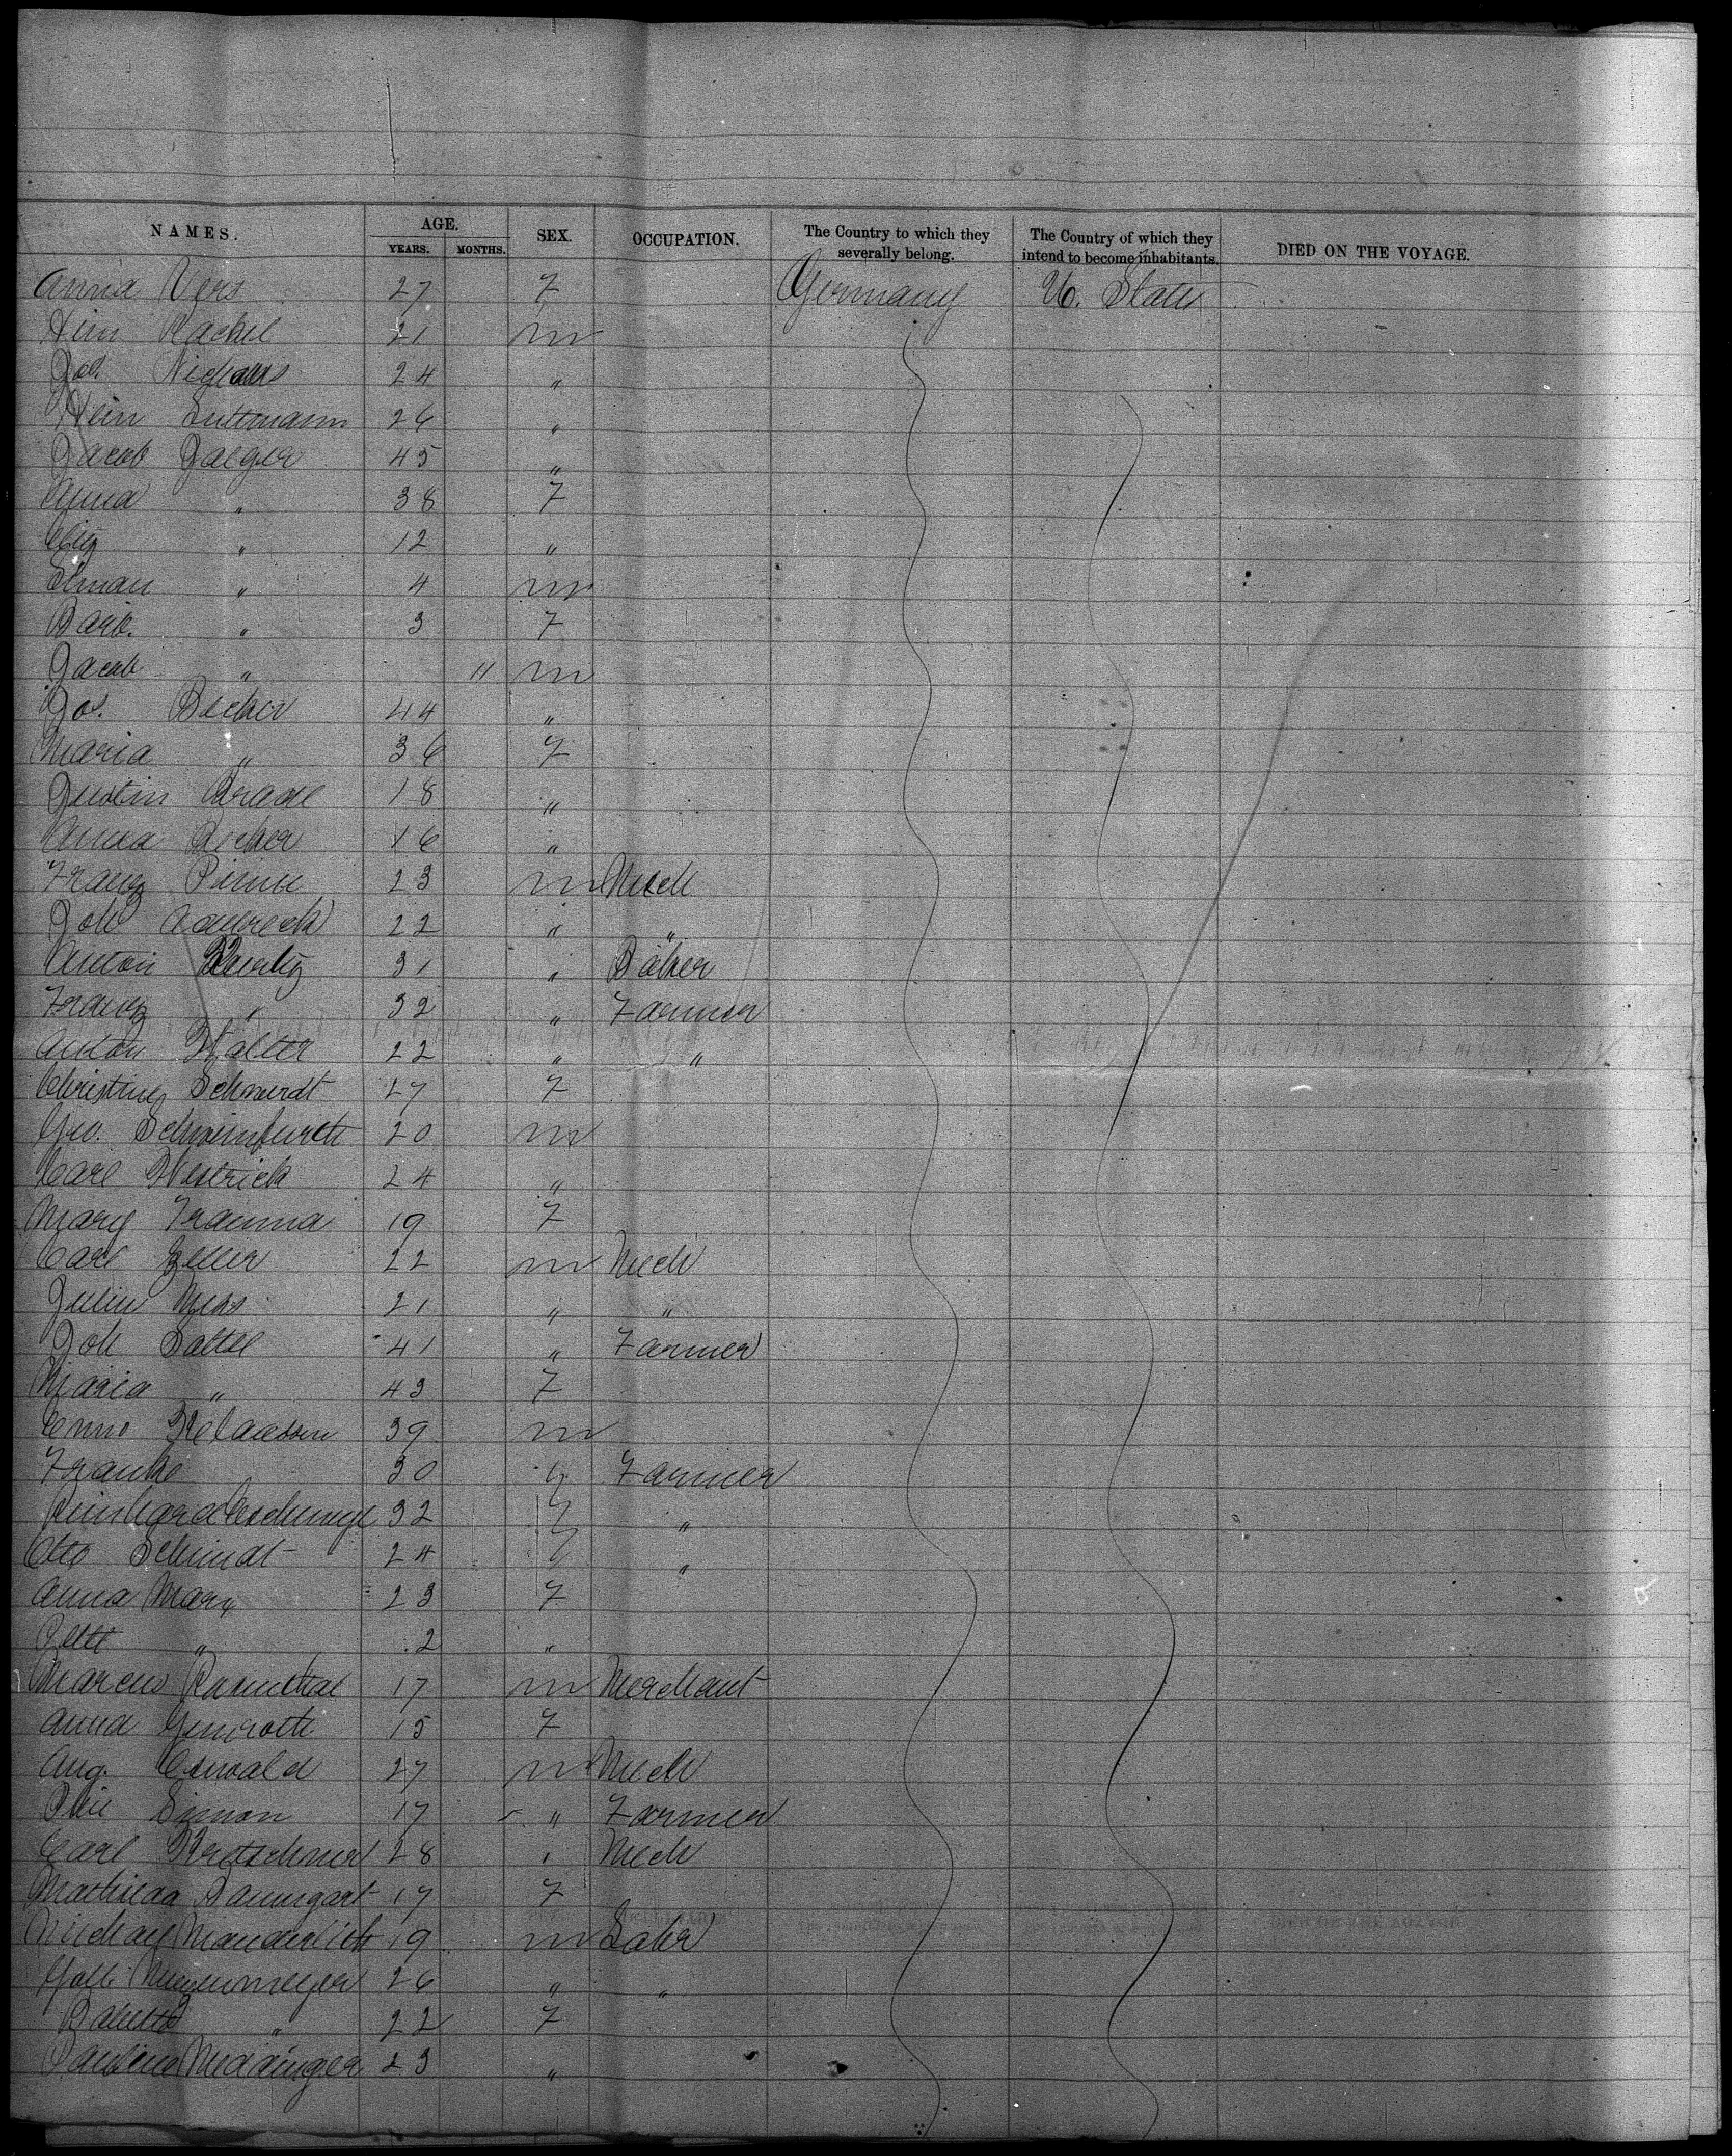 NAMES. AGE. SEX. OCCUPATION. The Country to which they severally belong. The Country of which they intend to become inhabitants. DIED ON THE VOYAGE.
YEARS. MONTHS.
Anna 27 F Germany U. States
Hein Rachel 21 m
Nichaus 24 "
Hein Luttmann 26 "
Jacob Jaeger 45 "
Anna " 38 F
Eliz " 12 "
" 4 m
Barb. " 3 F
Jacob " 11 m
Jos. Becker 44 "
Maria " 36 F
Justin 18 "
Anna Becker 16 "
Franz 23 m Mech
Joh 22 " "
Anton 31 " Baker
Franz " 32 " Farmer
Anton Walter 22 " "
Christine Schmidt 27 F
Geo. Schweinfurth 20 m
Carl Westrich 24 "
Mary Trauma 19 F
Carl Zeller 22 m Mech
Julius 21 " "
Joh Sattel 41 " Farmer
Maria " 43 F
Enno Klaassen 39 m
Franke 30 " Farmer
Reinhard 32 " "
Otto Schmidt 24 " "
Anna Marx 23 F
" 2 "
Marcus Rosenthal 17 m Merchant
Anna Genroth 15 F
Aug. Oswald 27 m Mech
Simon 17 " Farmer
Carl Kretschmer 28 " Mech
Mathilda Baumgart 17 F
Michael Manderlich 19 m Labr
26 " "
Babette " 22 F
Pauline Meddinger 23 "